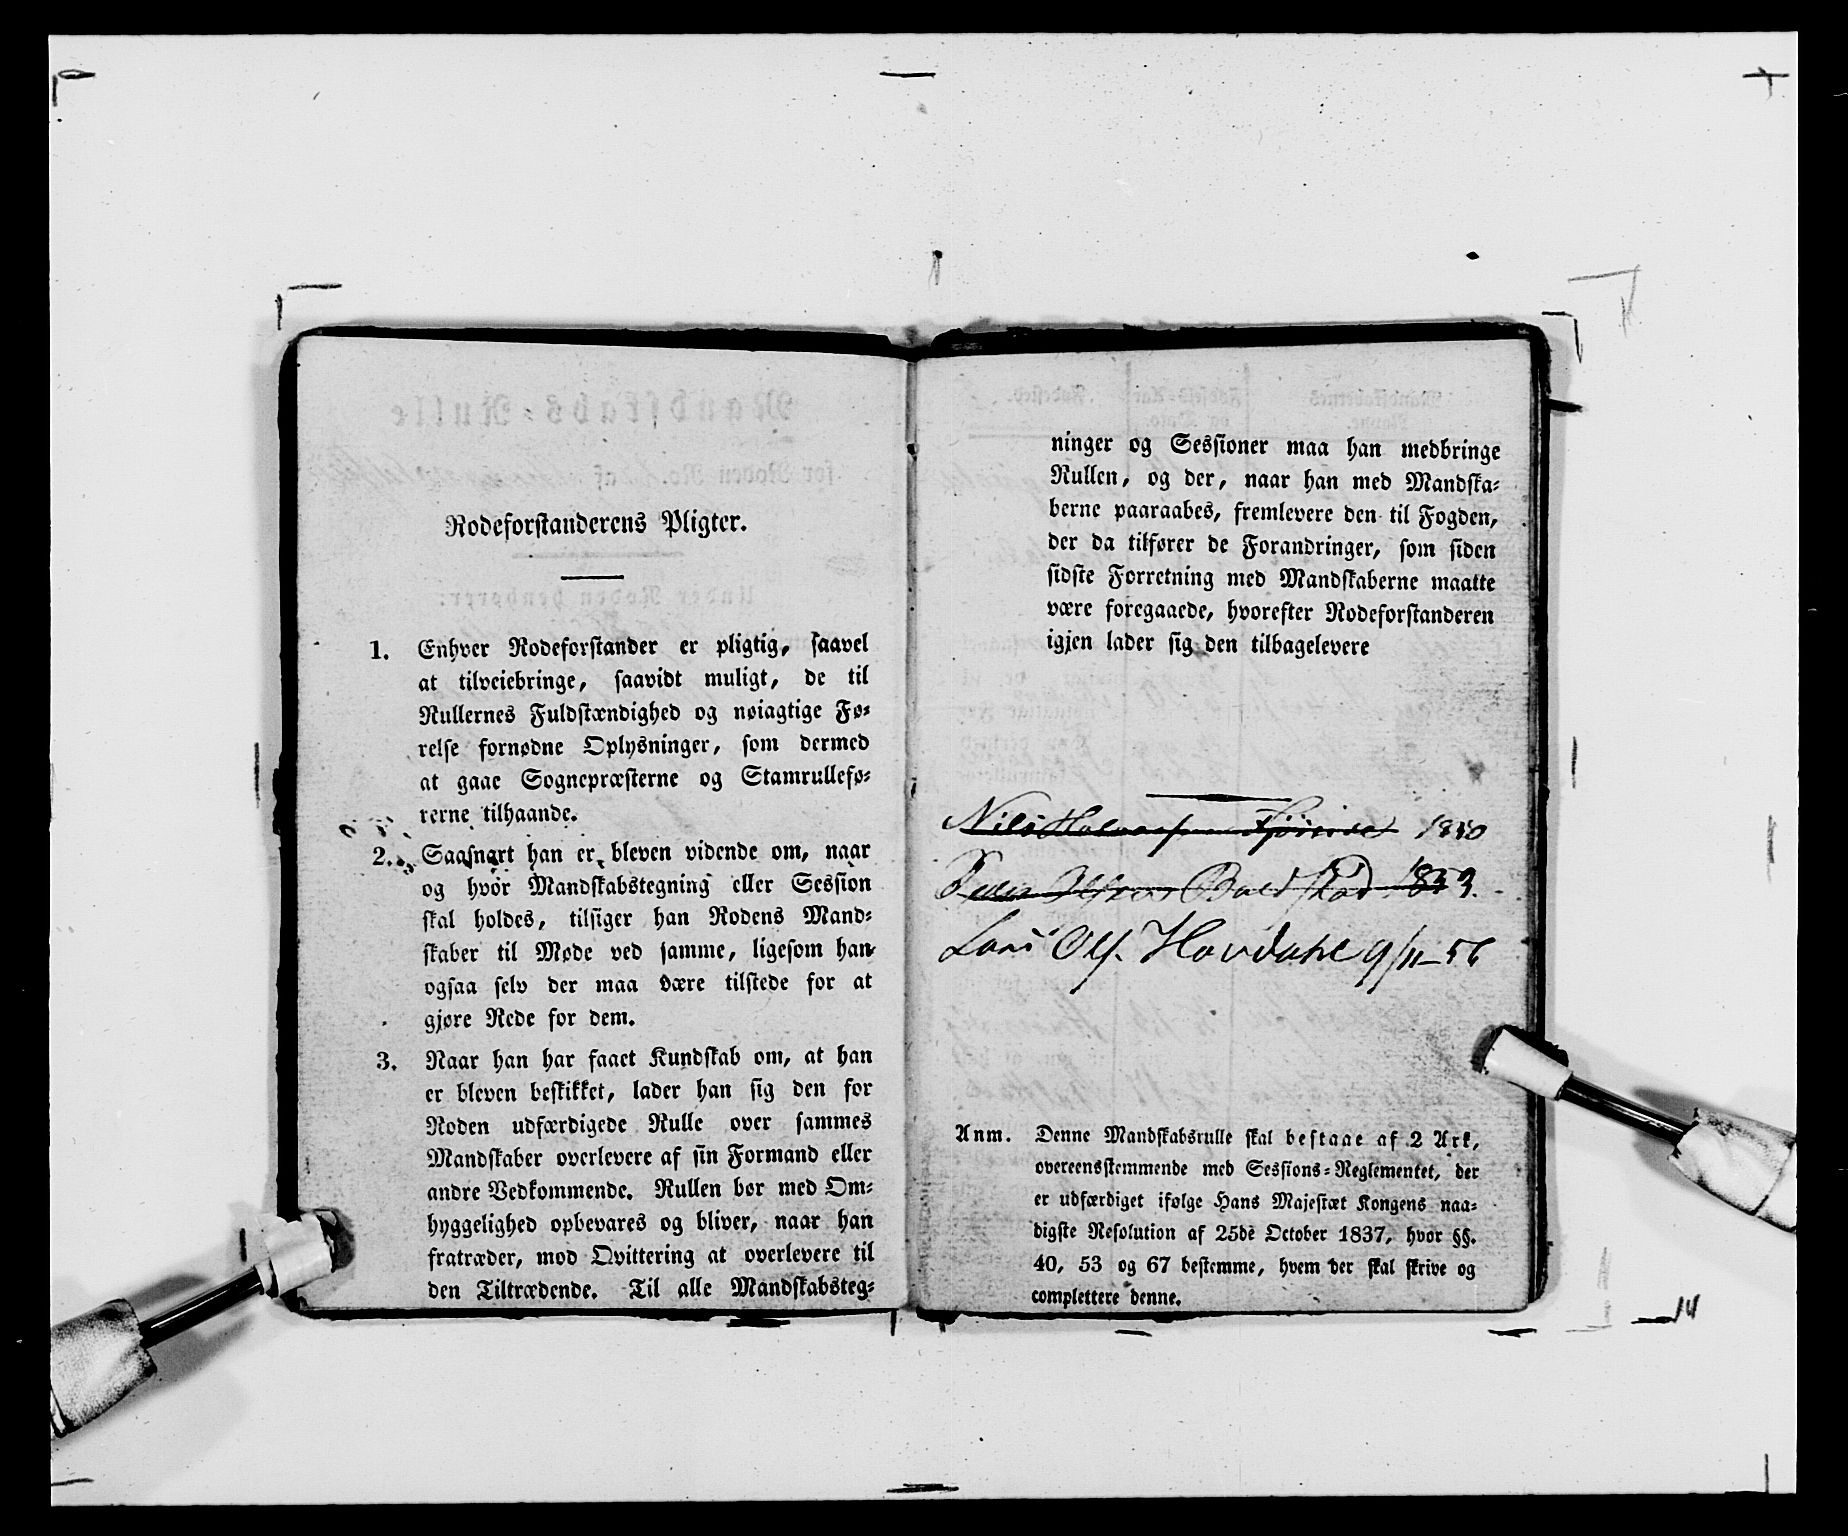 Rodeforstanderens Pligter.
1. Enhver Rodeforstander er pligtig, saavel
at tilveiebringe, saavidt muligt, de til
Rullernes Fuldstændighed og nøiagtige Fø-
relse fornødne Oplysninger, som dermed
at gaae Sognepræsterne og Stamrullefø-
rerne tilhaande.
2. Saasnart han er bleven vidende om, naar
og hvor Mandskabstegning eller Session
skal holdes, tilsiger han Rodens Mand-
skaber til Møde ved samme, ligesom han
ogsaa selv der maa være tilstede for at
gjøre Rede for dem.
3. Naar han har faaet Kundskab om, at han
er bleven beskikket, lader han sig den for
Roden udfærdigede Rulle over sammes
Mandskaber overlevere af sin Formand eller
andre Vedkommende. Rullen bør med Om-
hyggelighed opbevares og bliver, naar han
fratræder, mod Qvittering at overlevere til
den Tiltrædende. Til alle Mandskabsteg-
ninger og Sessioner maa han medbringe
Rullen, og der, naar han med Mandska-
berne paaraabes, fremlevere den til Fogden,
der da tilfører de Forandringer, som siden
sidste Forretning med Mandskaberne maatte
være foregaaede, hvorefter Rodeforstanderen
igjen lader sig den tilbagelevere
Nils 1850
1853.
Lars Ols. Hovdahl 9/11-56
Anm. Denne Mandskabsrulle skal bestaae af 2 Ark,
overeensstemmende med Sessions-Reglementet, der
er udfærdiget ifølge Hans Majestæt Kongens naa-
digste Resolution af 25de October 1837, hvor §§.
40, 53 og 67 bestemme, hvem der skal skrive og
complettere denne.
14